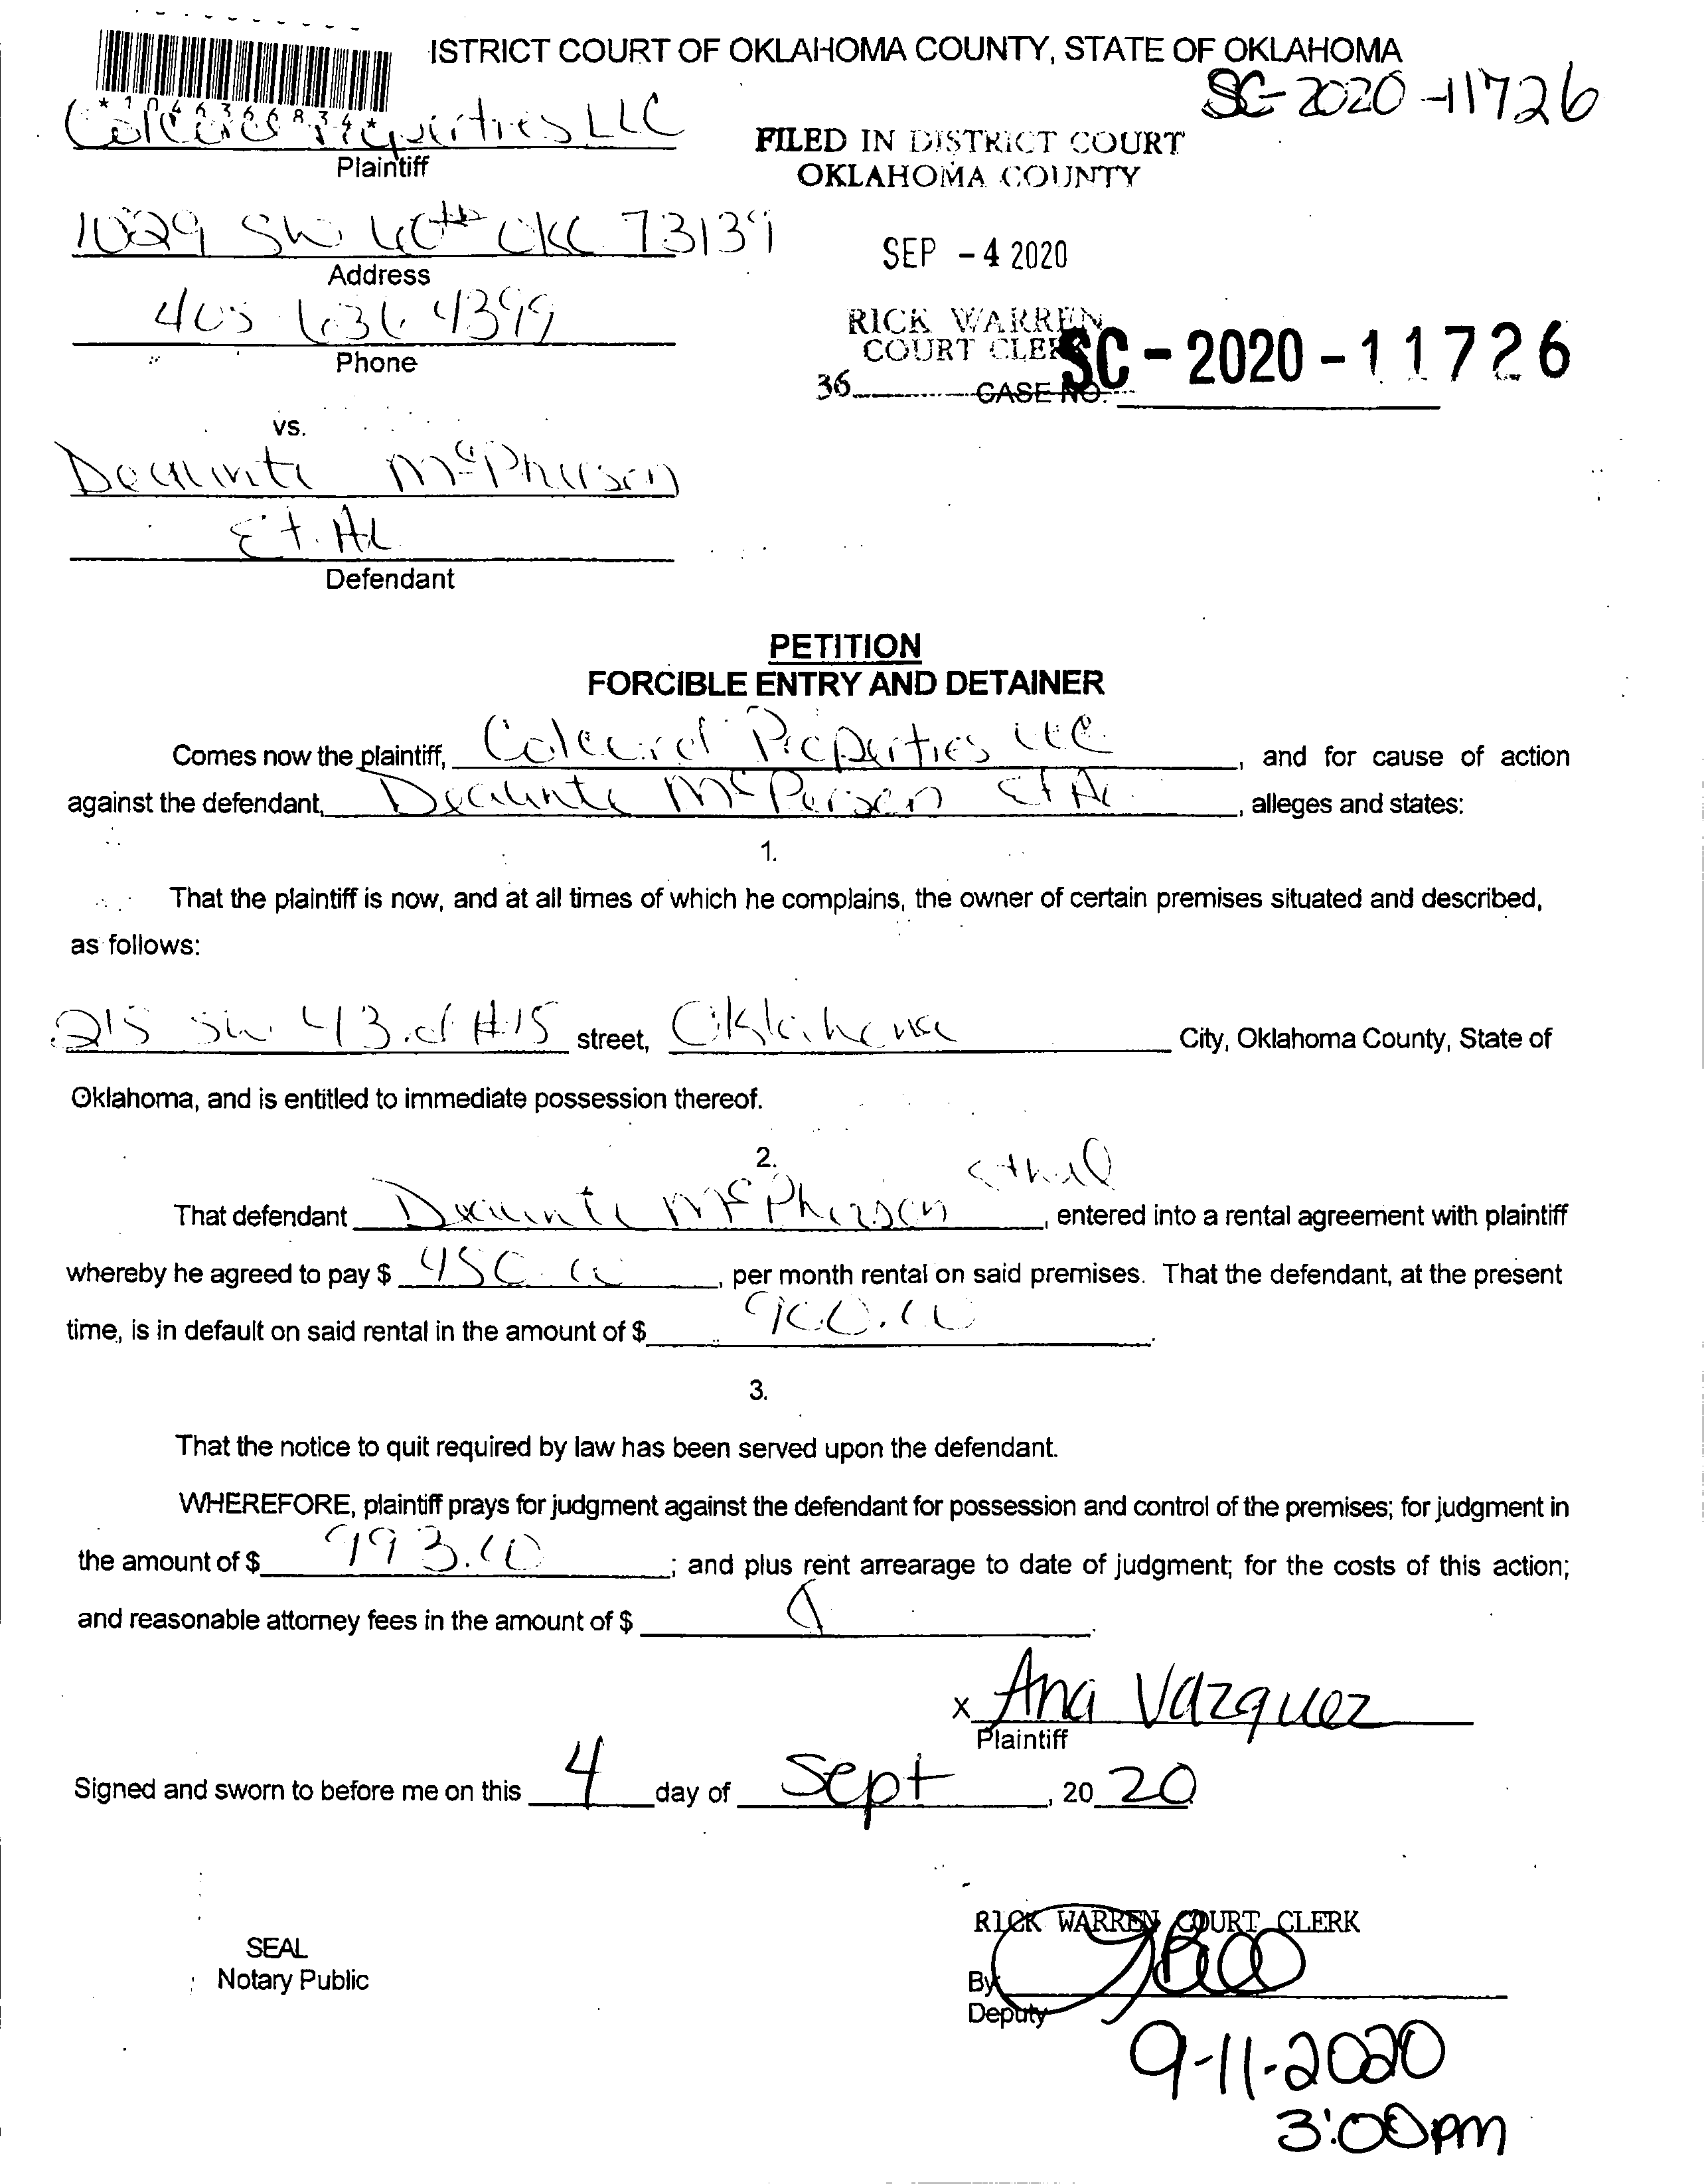 ISTRICT COURT OF OKLAHOMA COUNTY, STATE OF OKLAHOMA
SC-2020-11726
*1046366834*
Properties LLC
Plaintiff
FILED IN DISTRICT COURT
OKLAHOMA COUNTY
1029 SW 60th OKC 73139
Address
SEP - 4 2020
405 636 4399
Phone
RICK WARREN
COURT CLERK
SC-2020-11726
36
CASE NO.
vs.
McPherson
Et. Al
Defendant
PETITION
FORCIBLE ENTRY AND DETAINER
Comes now the plaintiff, Properties LLC, and for cause of action
against the defendant, McPerson Et Al, alleges and states:
1.
That the plaintiff is now, and at all times of which he complains, the owner of certain premises situated and described,
as follows:
215 SW 43rd #15 street, Oklahoma City, Oklahoma County, State of
Oklahoma, and is entitled to immediate possession thereof.
2.
That defendant McPherson, entered into a rental agreement with plaintiff
whereby he agreed to pay $ 450.00, per month rental on said premises. That the defendant, at the present
time, is in default on said rental in the amount of $ 900.00.
3.
That the notice to quit required by law has been served upon the defendant.
WHEREFORE, plaintiff prays for judgment against the defendant for possession and control of the premises; for judgment in
the amount of $ 993.00; and plus rent arrearage to date of judgment; for the costs of this action;
and reasonable attorney fees in the amount of $ .
x Ana Vazquez
Plaintiff
Signed and sworn to before me on this 4 day of Sept, 20 20
RICK WARREN COURT CLERK
SEAL
Notary Public
By
Deputy
9-11-2020
3:00pm